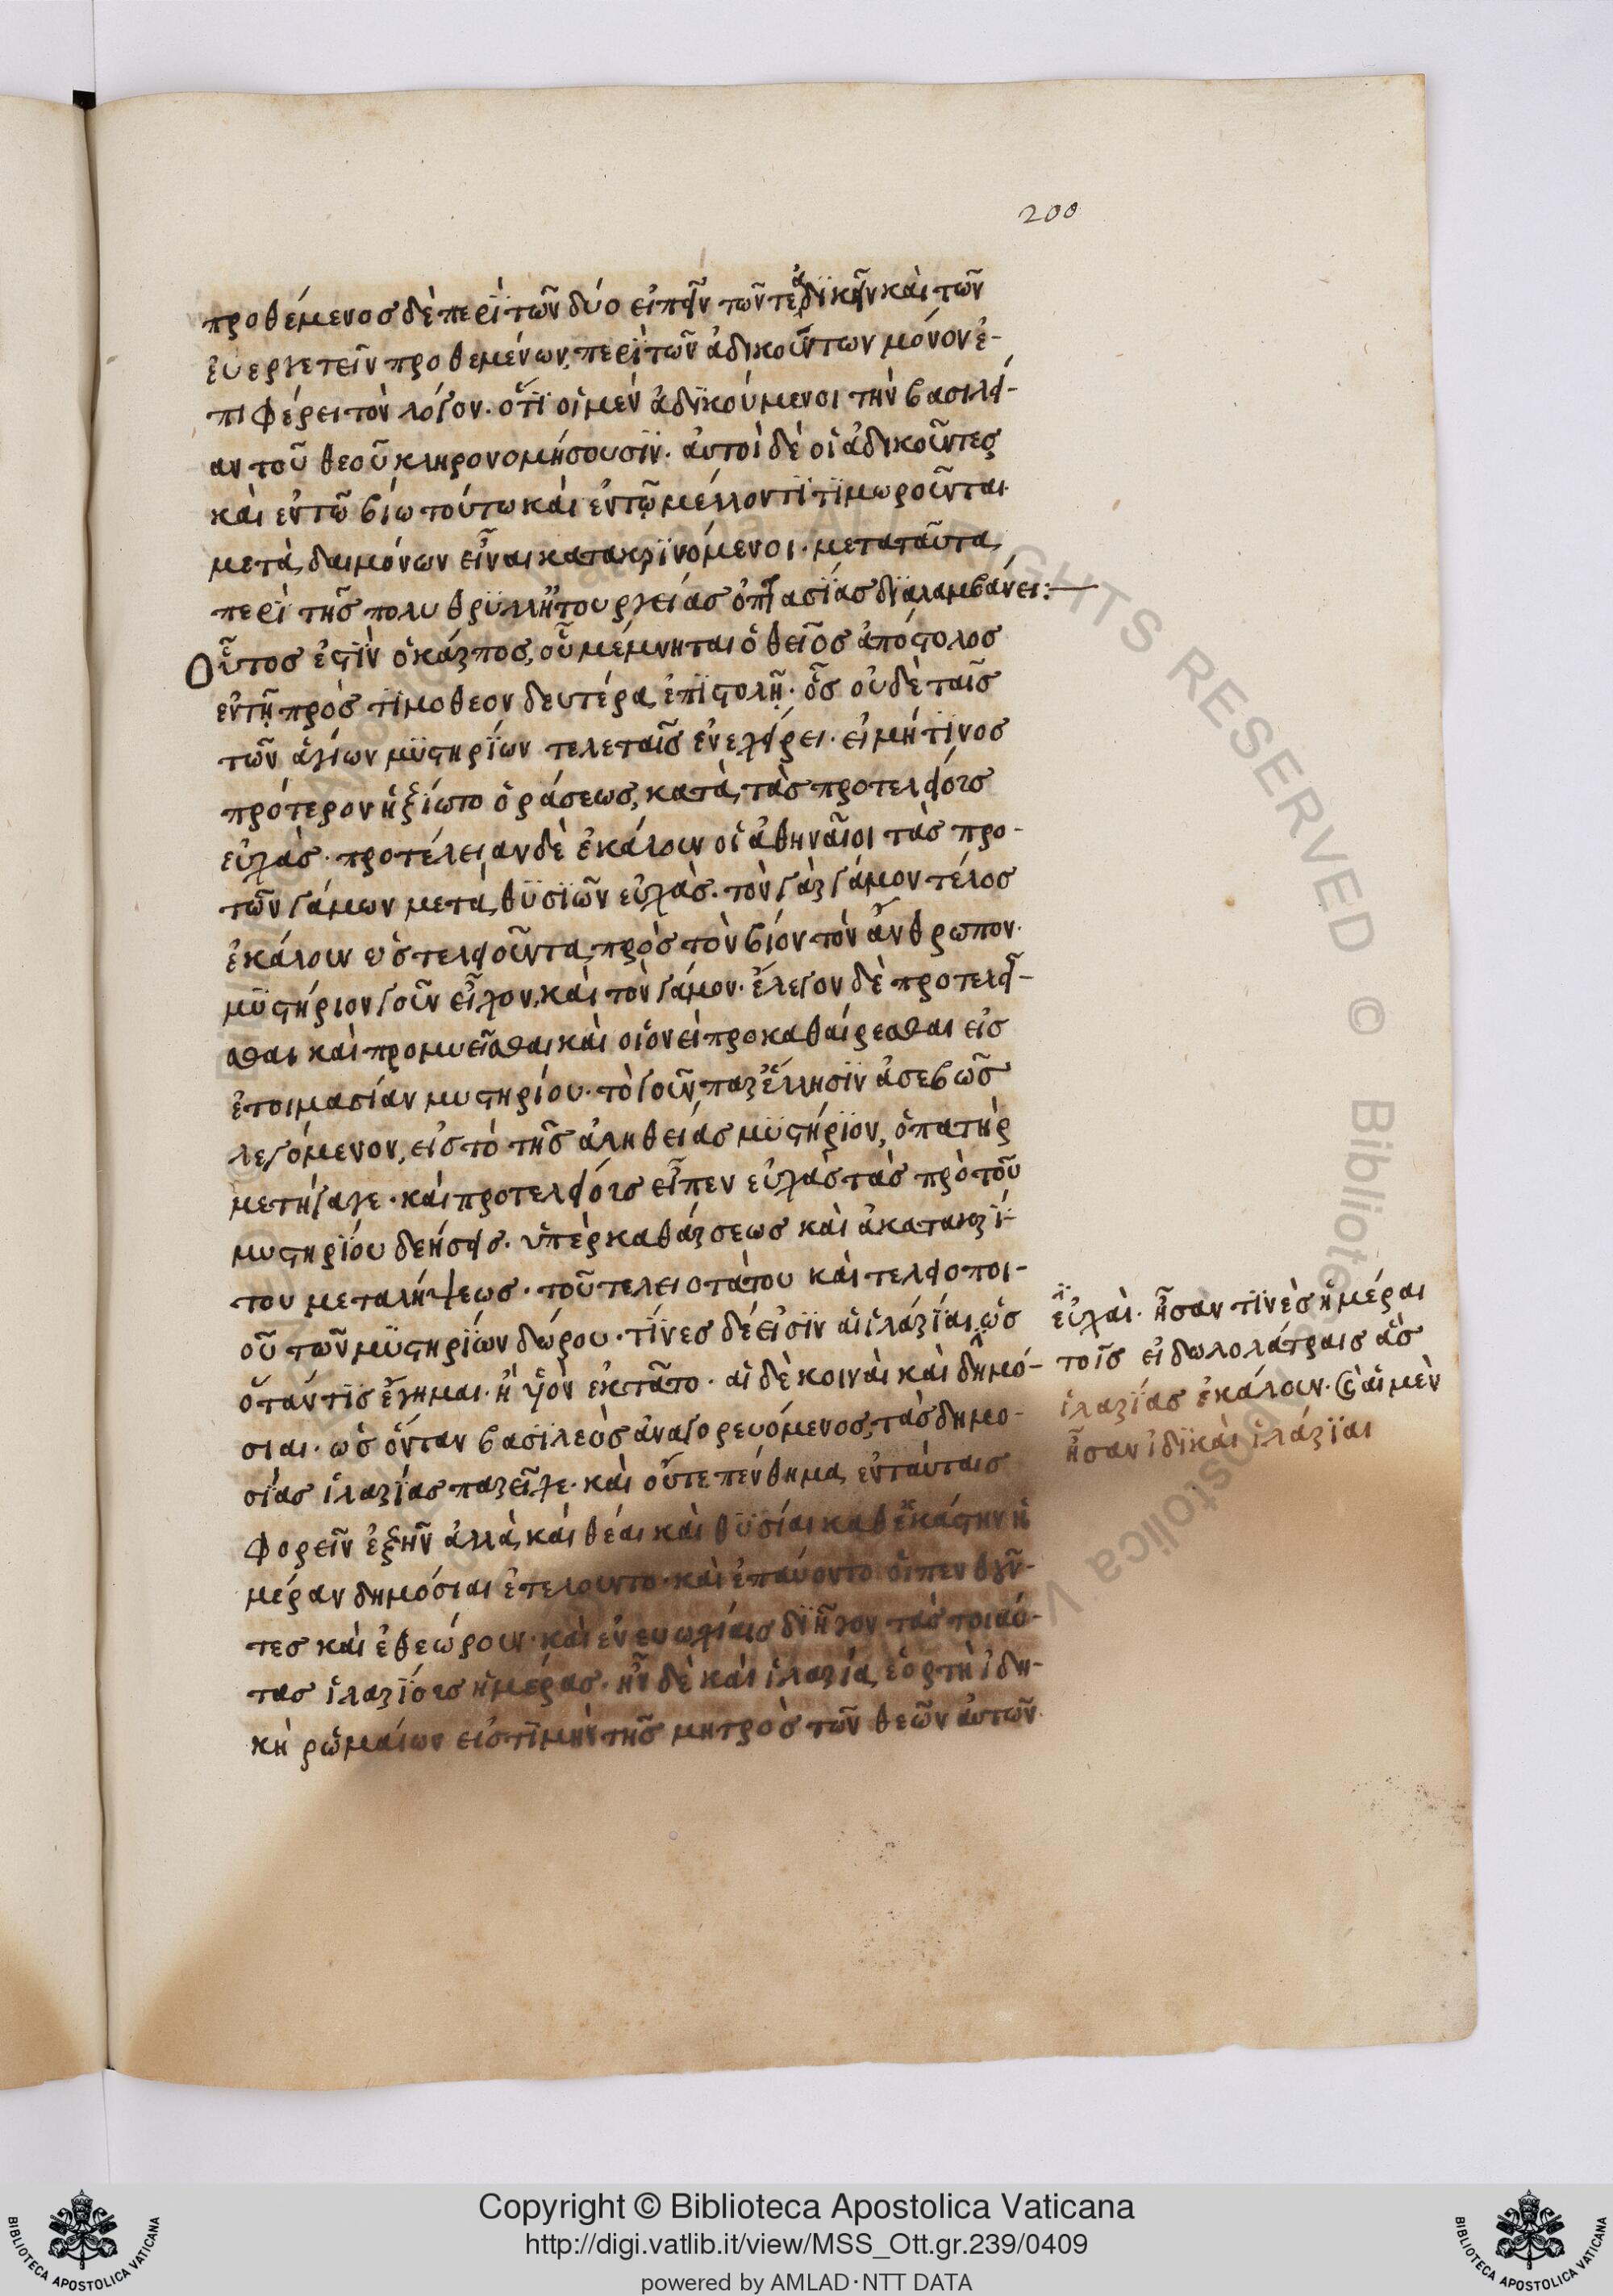 200
προθέμενος δὲ περὶ τῶν δύο εἰπεῖν τῶν τε ἀδικεῖν καὶ τῶν
ἐυεργετεῖν προθεμένων, περὶ τῶν ἀδικούντων μόνον ἐ-
πιφέρει τὸν λόγον. ὅτι οἱ μὲν ἀδικούμενοι τὴν βασιλεί-
αν τοῦ θεοῦ κληρονομήσουσϊν. ἀυτοὶ δὲ οἱ ἀδικοῦντες
καὶ ἐν τῶ βίω τούτω καὶ ἐν τῷ μέλλοντϊ τϊμωροῦνται
μετὰ δαιμόνων εἶναι κατακρϊνόμενοι. μετὰ ταῦτα
περὶ τῆς πολυθρϋλλήτου ργείας ὀπτασίας δϊαλαμβάνει:—
Οὗτος ἐστϊν ὁ κάρπος, οὗ μέμνηται ὁ θεῖος ἀπόστολος
ἐν τῇ πρὸς τϊμόθεον δευτέρα ἐπϊστολῇ. ὃς οὐδὲ ταῖς
τῶν ἁγίων μϋστηρίων τελεταῖς ἐνεχείρει. εἰ μή τϊνος
πρότερον ἠξίωτο ὁράσεως, κατὰ τὰς προτελείους
εὐχάς. προτέλειαν δὲ ἐκάλουν οἱ ἀθηναῖοι τὰς πρὸ
τῶν γάμων μετὰ θϋσϊῶν εὐχάς. τὸν γὰρ γάμον τέλος
ἐκάλουν ὡς τελειοῦντα πρὸς τὸν βίον τὸν ἄνθρωπον.
μϋστήριον γοῦν εἶχον, καὶ τὸν γάμον. ἔλεγον δὲ προτελεῖ-
σθαι καὶ προμυεῖσθαι καὶ οἱονεὶ προκαθαίρεσθαι εἰς
ἑτοιμασίαν μυστηρίου. τὸ γοῦν παρ' ἕλλησϊν ἀσεβῶς
λεγόμενον, εἰς τὸ τῆς ἀληθείας μϋστήρϊον, ὁ πατὴρ
μετήγαγε. καὶ προτελείους εἶπεν εὐχὰς τὰς πρὸ τοῦ
μυστηρίου δεήσεις. ὑπὲρ καθάρσεως καὶ ἀκατακρί-
του μεταλήψεως. τοῦ τελειοτάτου καὶ τελειοποι-
οῦ τῶν μϋστηρίων δώρου. τϊνες δέ εἰσϊν αἱ ἱλάρϊαι, ὡς
ὅταν τϊς ἔγημαι. ἢ ὑϊὸν ἐκτᾶτο. αἱ δὲ κοιναὶ καὶ δημό-
σιαι. ὡς ὅνταν βασϊλεὺς ἀναγορευόμενος, τὰς δημο-
σίας ἱλαρϊας παρεῖχε. καὶ οὔτε πένθημα ἐν ταύταις
φορεῖν ἐξῆν ἀλλὰ καὶ θέαι καὶ θϋσίαι καθ' ἑκάστην ἡ
μέραν δημόσιαι ἐτελοῦντο. καὶ ἐπαύοντο οἱ πενθοῦν-
τες καὶ ἐθεώρουν. καὶ ἐν ευωχίαις δϊῆγον τὰς τοιαύ-
τας ἱλαρϊους ἡμέρας. ἦν δὲ καὶ ἱλαρία ἑορτὴ ἰδη-
κὴ ρωμαίων εἰς τϊμὴν τῆς μητρὸς τῶν θεῶν ἀυτῶν
εὐχαὶ. ἦσαν τϊνὲς ἡμέραι
τοῖς εἰδωλολάτραις ἃς
ἱλαρϊας ἐκάλουν. καὶ αἱ μὲν
ἦσαν ἰδϊκαὶ ἱλάρϊαι
Copyright © Biblioteca Apostolica Vaticana
http://digi.vatlib.it/view/MSS_Ott.gr.239/0409
powered by AMLAD·NTT DATA
BIBLIOTECA APOSTOLICA VATICANA
BIBLIOTECA APOSTOLICA VATICANA